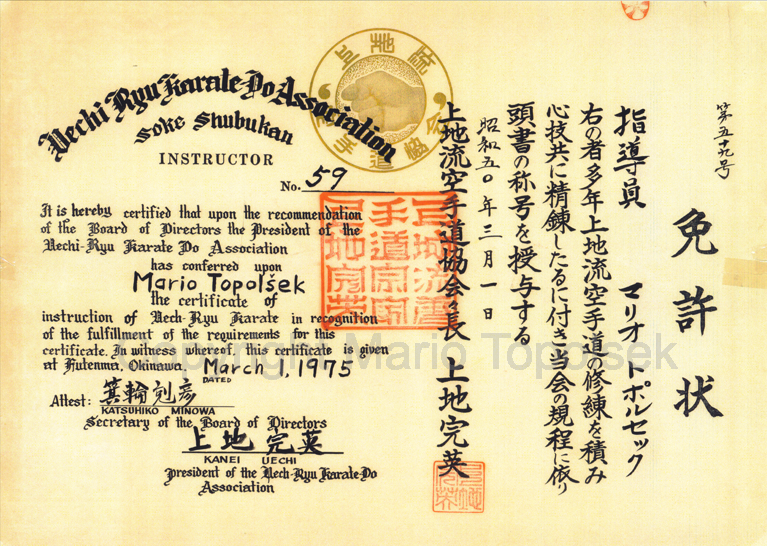 Uechi Ryu Karate-Do Association
Soke Shubukan
INSTRUCTOR
No. 59
It is hereby certified that upon the recommendation
of the Board of Directors the President of the
Uechi-Ryu Karate Do Association
has conferred upon
Mario Topolšek
the certificate of
instruction of Uech-Ryu Karate in recognition
of the fulfillment of the requirements for this
certificate. In witness whereof, this certificate is given
at Futenma, Okinawa. March 1, 1975
DATED
Attest: 箕輪剋彦
KATSUHIKO MINOWA
Secretary of the Board of Directors
上地完英
KANEI UECHI
president of the Uech-Ryu Karate-Do
Association
第五十九号
免許状
指導員 マリオ トポルセック
右の者多年上地流空手道の修練を積み
心技共に精錬したるに付き当会の規程に依り
頭書の称号を授与する
昭和五〇年三月一日
上地流空手道協会々長 上地完英
Copyright Mario Topolsek